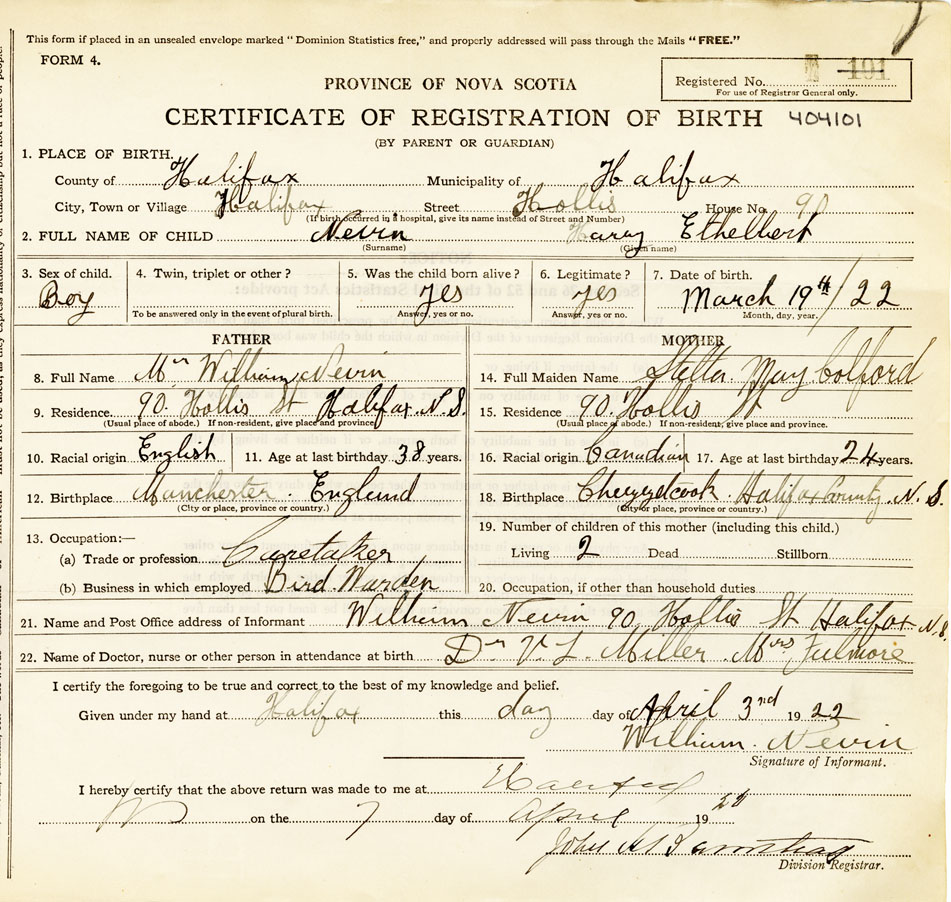 This form if placed in an unsealed envelope marked "Dominion Statistics free," and properly addressed will pass through the Mails "FREE."
FORM 4.
PROVINCE OF NOVA SCOTIA
Registered No. 101
For use of Registrar General only.
CERTIFICATE OF REGISTRATION OF BIRTH 404101
(BY PARENT OR GUARDIAN)
1. PLACE OF BIRTH.
County of Halifax Municipality of Halifax
City, Town or Village Halifax Street Hollis House No. 90
(If birth occurred in a hospital, give its name instead of Street and Number)
2. FULL NAME OF CHILD Nevin Harry Ethelbert
(Surname) (Given name)
3. Sex of child. 4. Twin, triplet or other? 5. Was the child born alive? 6. Legitimate? 7. Date of birth.
Boy yes yes March 19th/22
To be answered only in the event of plural birth. Answer, yes or no. Answer, yes or no. Month, day, year.
FATHER
8. Full Name Mr William Nevin
9. Residence. 90. Hollis St Halifax. N.S.
(Usual place of abode.) If non-resident, give place and province
10. Racial origin English 11. Age at last birthday 38 years.
12. Birthplace Manchester. England
(City or place, province or country.)
13. Occupation:—
(a) Trade or profession Caretaker
(b) Business in which employed Bird Warden
MOTHER
14. Full Maiden Name Stella. May Colford
15. Residence 90. Hollis St
(Usual place of abode.) If non-resident, give place and province.
16. Racial origin Canadian 17. Age at last birthday 24 years.
18. Birthplace Chezzetcook. Halifax County. N. S.
(City or place, province or country.)
19. Number of children of this mother (including this child.)
Living 2 Dead Stillborn
20. Occupation, if other than household duties
21. Name and Post Office address of Informant William Nevin 90. Hollis St Halifax N.S.
22. Name of Doctor, nurse or other person in attendance at birth Dr V. L. Miller. Mrs Fulmore
I certify the foregoing to be true and correct to the best of my knowledge and belief.
Given under my hand at Halifax this day day of April 3rd 1922
William. Nevin
Signature of Informant.
I hereby certify that the above return was made to me at Halifax
NS on the 7 day of April 19
John
Division Registrar.